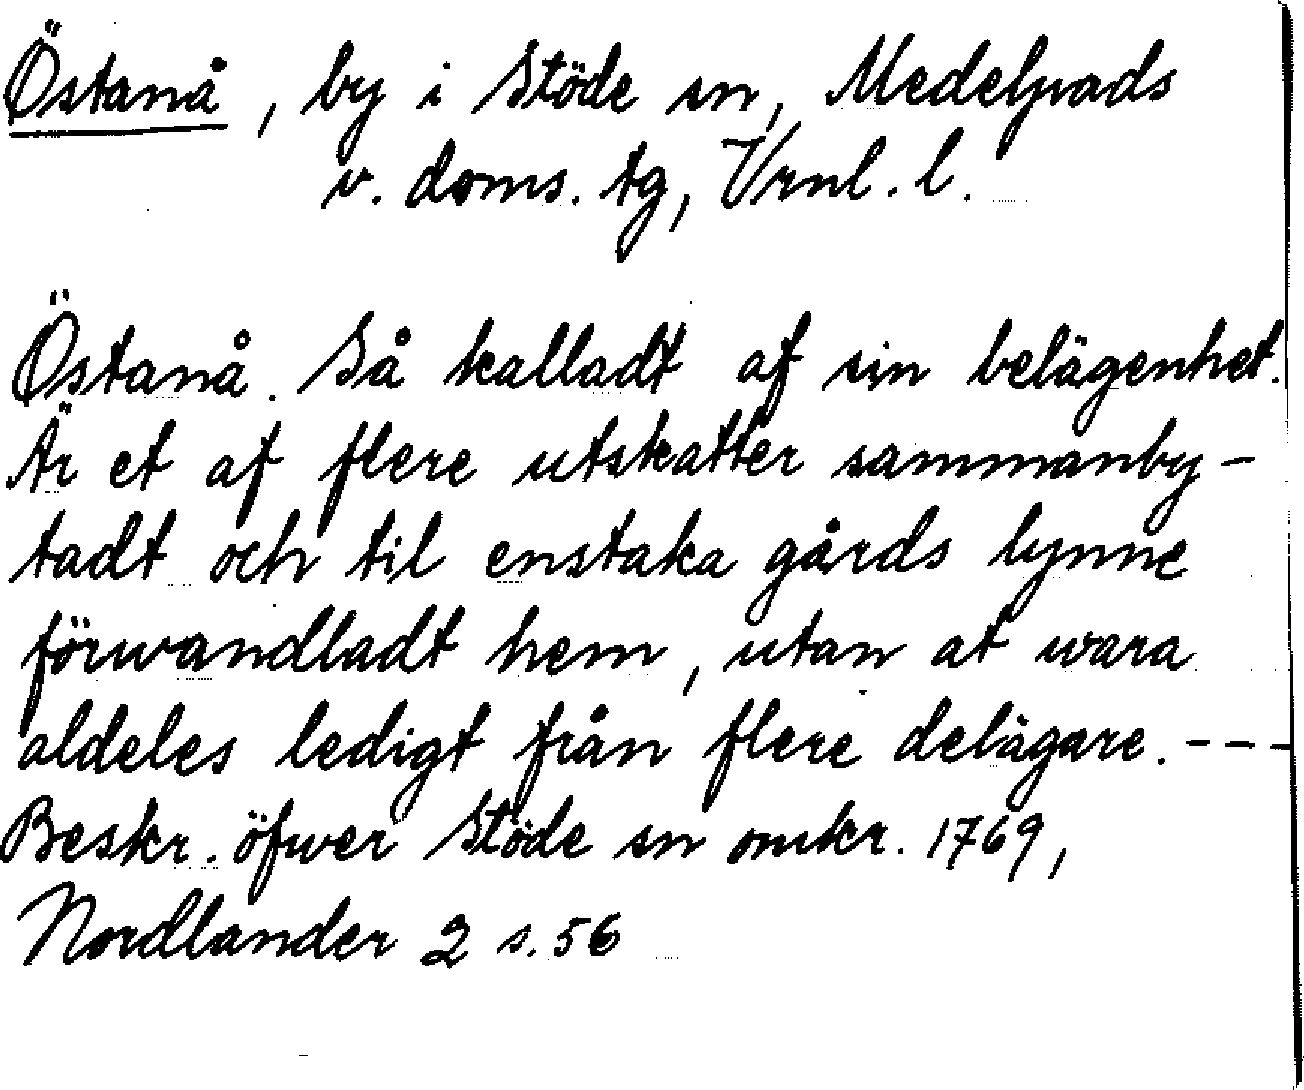 Östanå, by i Stöde sn, Medelpads
v. doms. tg, Vrnl. l.
Östanå. Så kalladt af sin belägenhet.
Är et af flere utskatter sammanby-
tadt och til enstaka gårds lynne
förwandladt hem, utan at wara
aldeles ledigt från flere delägare. - - -
Beskr. öfwer Stöde sn omkr. 1769,
Nordlander 2 s. 56